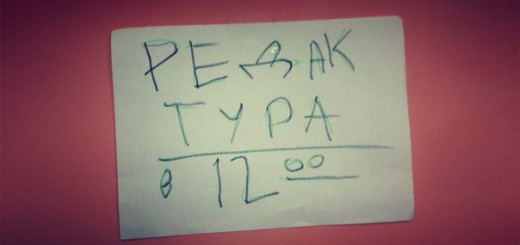 РЕДАК
ТУРА
в 12 00